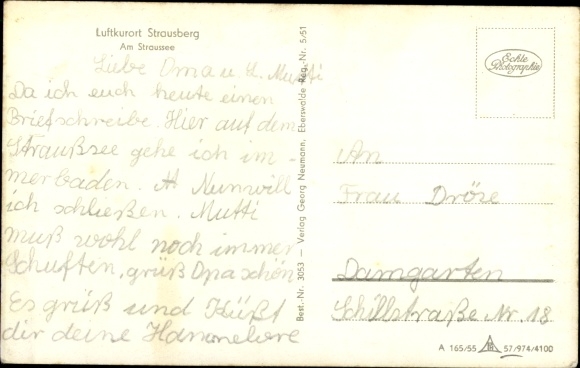 Luftkurort Strausberg
Am Straussee
Liebe Oma u. L. Mutti
Da ich euch heute einen
Brief schreibe. Hier auf dem
Straußsee gehe ich im -
mer baden. Nun will
ich schließen. Mutti
muß wohl noch immer
Schuften, grüß Opa schön
Es grüß und Küßt
dir deine Hannelore
Best.-Nr. 3053 — Verlag Georg Neumann, Eberswalde Reg.-Nr. 5/51
Echte
Photographie
An
Frau Dröse
Damgarten
Schillstraße Nr. 18
A 165/55 57/974/4100